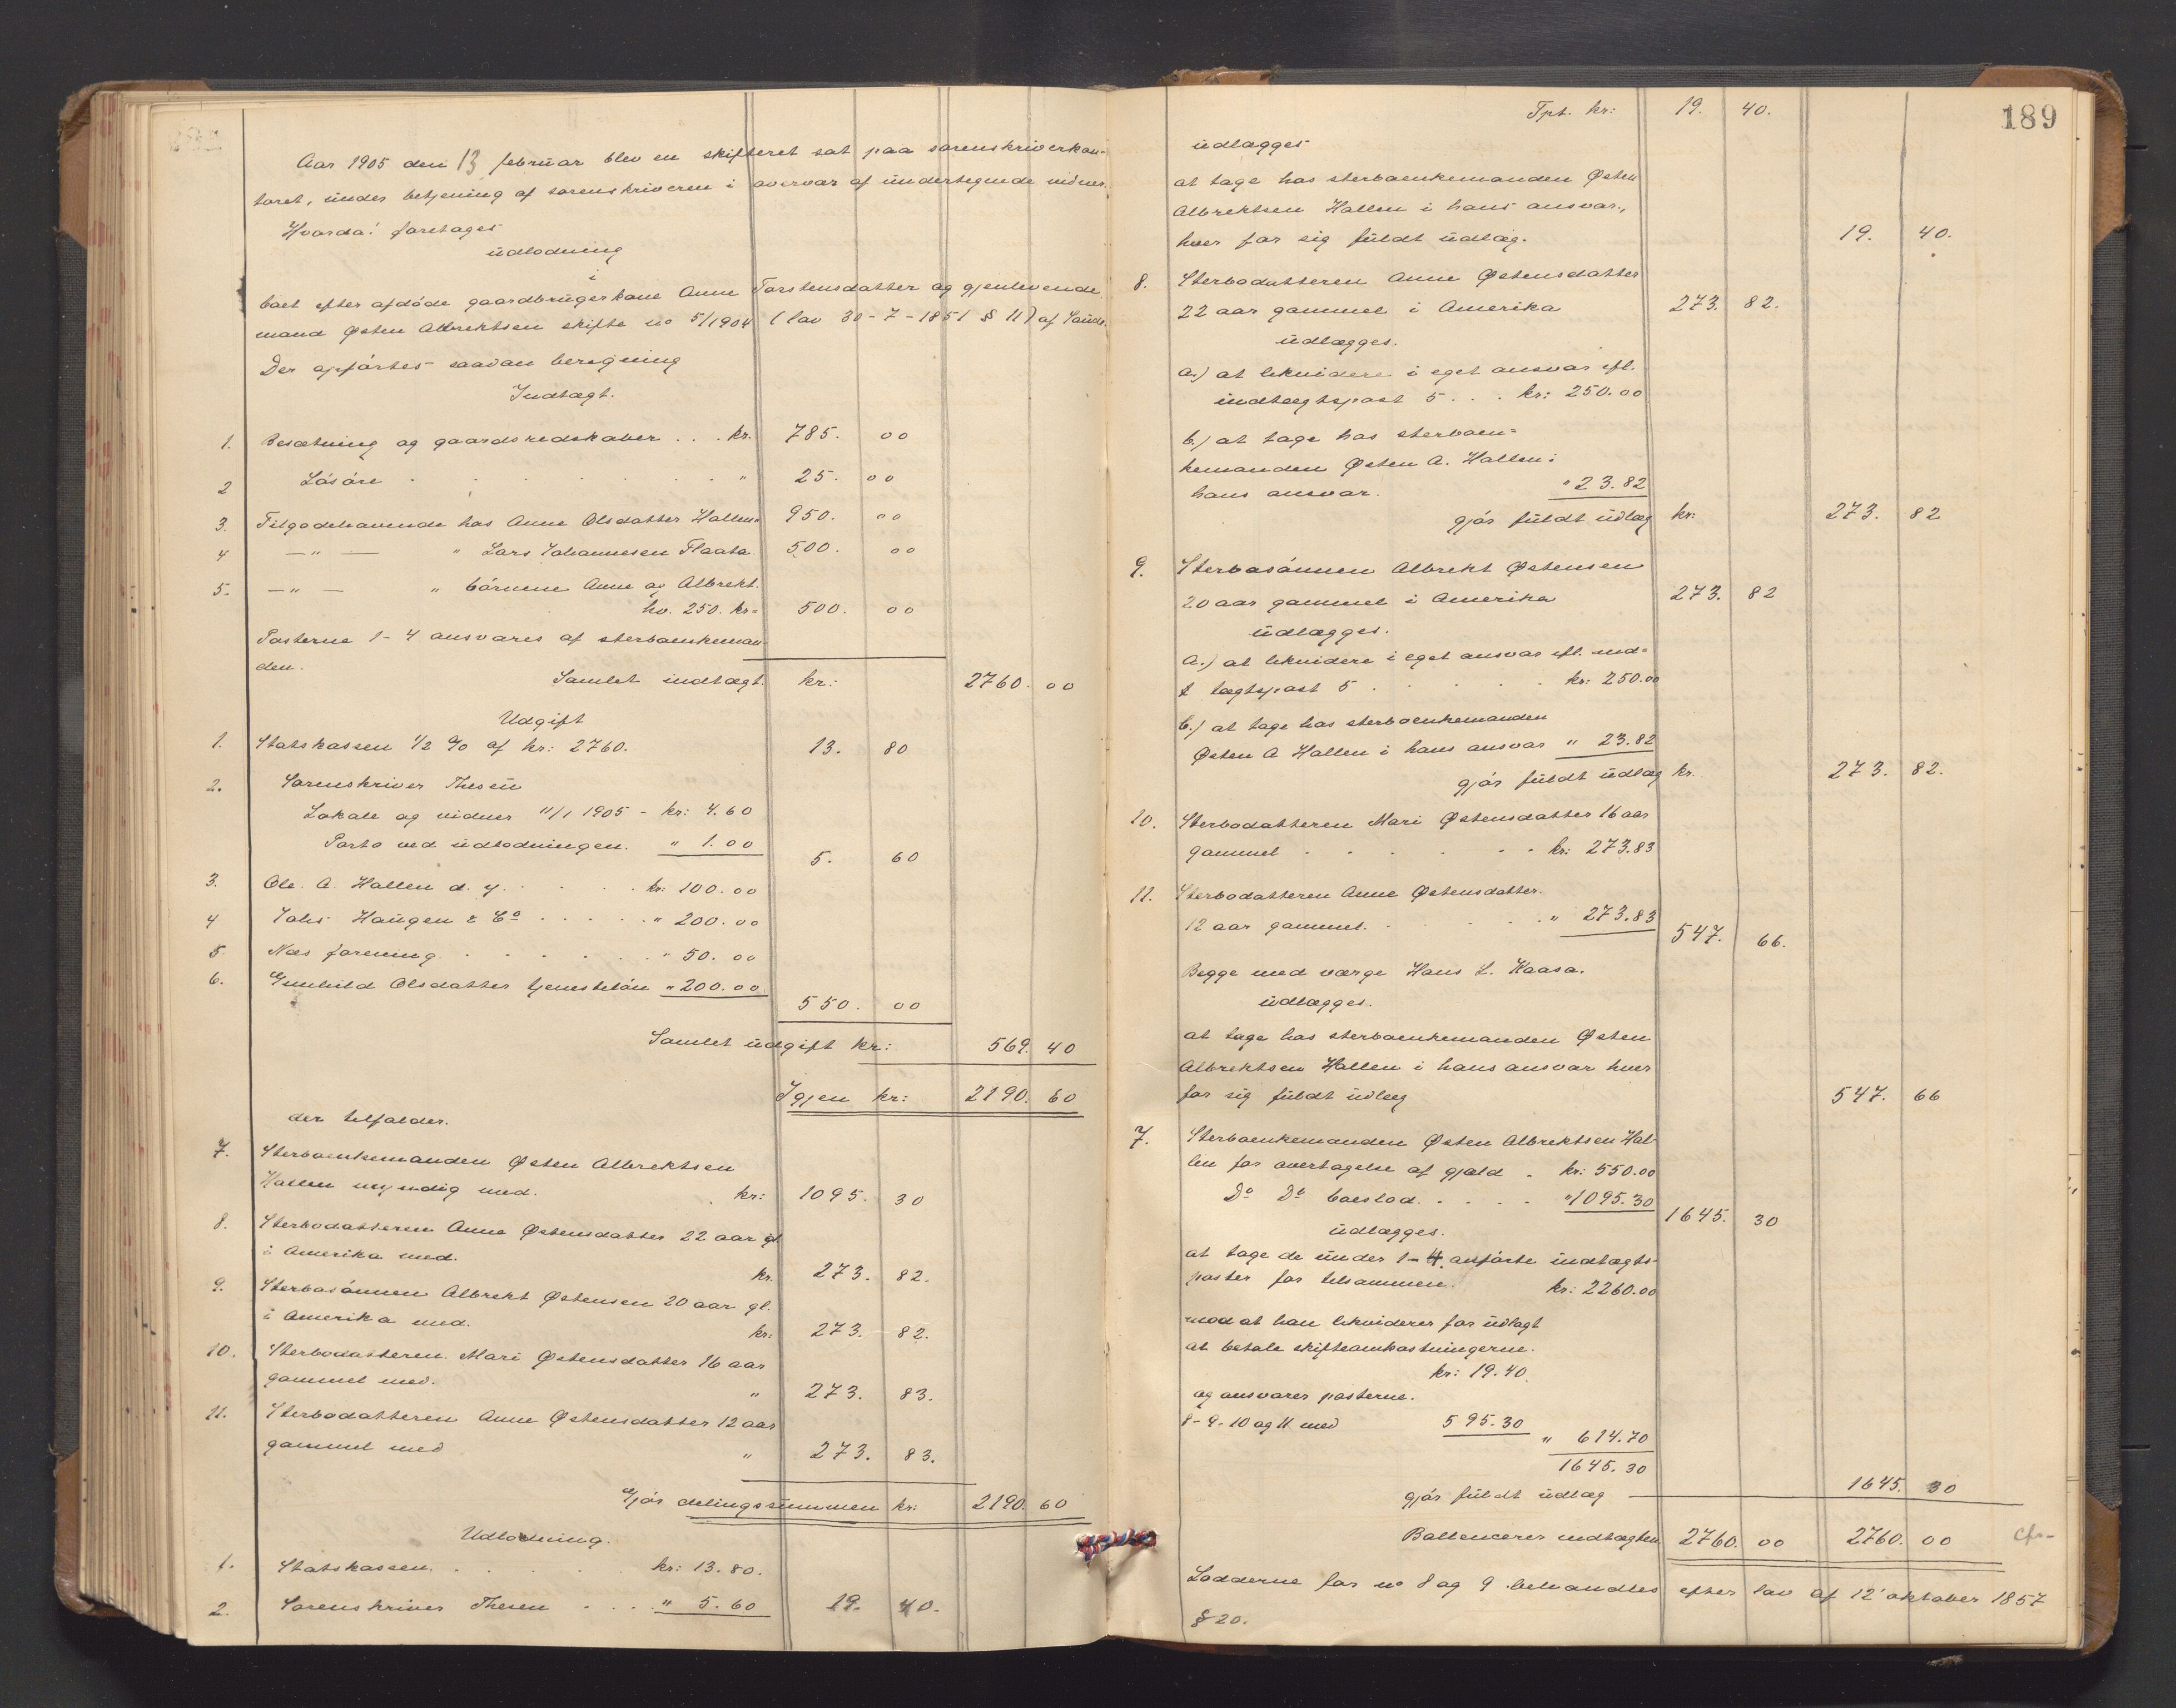 Aar 1905 den 13 februar blev en skifteret sat paa sorenskriverkon-
toret, under betjening af sorenskriveren i overvær af undertegnede vidner.
Hvorda! foretages
udlodning
i
boet efter afdøde gaardbrugerkone Anne Torstensdatter og gjenlevende
mand Østen Albrektsen skifte no 5/1904 (lov 30-7-1851 § 11) af Saude.
Der opførtes saadan beregning
Indtægt.
1. Besætning og gaardsredskaber . . . kr. 785. 00
2 Løsøre . . . . . . . . " 25. 00
3. Tilgodehavende hos Anne Olsdatter Hallen " 950. 00
4 —"— " Lars Johannesen Flaata. 500. 00
5. —"— " børnene Anne og Albrekt.
hv. 250. kr= 500. 00
Posterne 1-4 ansvares af sterboenkeman-
den.
Samlet indtægt. kr: 2760. 00
Udgift
1. Statskassen 1/2 % af kr: 2760. 13. 80
2. Sorenskriver Thesen
Lokale og vidner 11/1 1905 - kr: 4.60
Porto ved udlodningen. " 1.00 5. 60
3. Ole. A. Hallen d. y. . . . . kr: 100.00
4 Johs Haugen & Co . . . . . " 200.00
5 Næs forening . . . . . . . " 50.00
6. Gunhild Olsdatter tjenesteløn " 200.00 550. 00
Samlet udgift kr: 569. 40
Igjen kr: 2190. 60
der tilfalder.
7. Sterboenkemanden Østen Albrektsen
Hallen myndig med. kr: 1095. 30
8. Sterbodatteren Anne Østensdatter 22 aar gl.
i Amerika med. kr. 273. 82.
9. Sterbosønnen Albrekt Østensen 20 aar gl.
i Amerika med. kr: 273. 82.
10. Sterbodatteren Mari Østensdatter 16 aar
gammel med. " 273. 83.
11. Sterbodatteren Anne Østensdatter 12 aar
gammel med " 273. 83.
Gjør delingssummen kr: 2190. 60
Udlodning.
1. Statskassen . . . . . . kr: 13.80.
2. Sorenskriver Thesen . . . . " 5.60 19. 40.
189
Tpt. kr: 19. 40.
udlægges
at tage hos sterboenkemanden Østen
Albrektsen Hallen i hans ansvar.,
hver for sig fuldt udlæg. 19. 40.
8. Sterbodatteren Anne Østensdatter
22 aar gammel i Amerika 273. 82.
udlægges.
a.) at likvidere i eget ansvar efl.
indtægtspost 5 . . . kr: 250.00
b.) at tage hos sterboen=
kemanden Østen A. Hallen i
hans ansvar. " 23.82
gjør fuldt udlæg kr: 273. 82
9. Sterbosønnen Albrekt Østensen
20 aar gammel i Amerika 273. 82
udlægges.
a.) at likvidere i eget ansvar efl. ind=
t tægtspost 5 . . . . . kr: 250.00
b.) at tage hos sterboenkemanden
Østen A Hallen i hans ansvar " 23.82
gjør fuldt udlæg kr. 273. 82.
10. Sterbodatteren Mari Østensdatter 16 aar
gammel . . . . . . kr: 273.83
11. Sterbodatteren Anne Østensdatter.
12 aar gammel. . . . . " 273.83 547. 66.
Begge med værge Hans L. Kaasa.
udlægges.
at tage hos sterboenkemanden Østen
Albrektsen Hallen i hans ansvar hver
for sig fuldt udlæg 547. 66
7. Sterboenkemanden Østen Albrektsen Hal-
len for overtagelse af gjæld . kr: 550.00
Do Do boeslod. . . . . " 1095.30 1645. 30
udlægges.
at tage de under 1-4 anførte indtægts-
poster for tilsammen. kr: 2260.00
mod at han likviderer for udlagt
at betale skifteomkostningerne.
kr: 19.40.
og ansvarer posterne.
8-9-10 og 11 med 595.30
" 614.70
1645.30
gjør fuldt udlæg — 1645. 30
Ballencerer indtægten 2760. 00 2760. 00
Lodderne for no 8 og 9 behandles efter lov af 12' oktober 1857
§ 20.